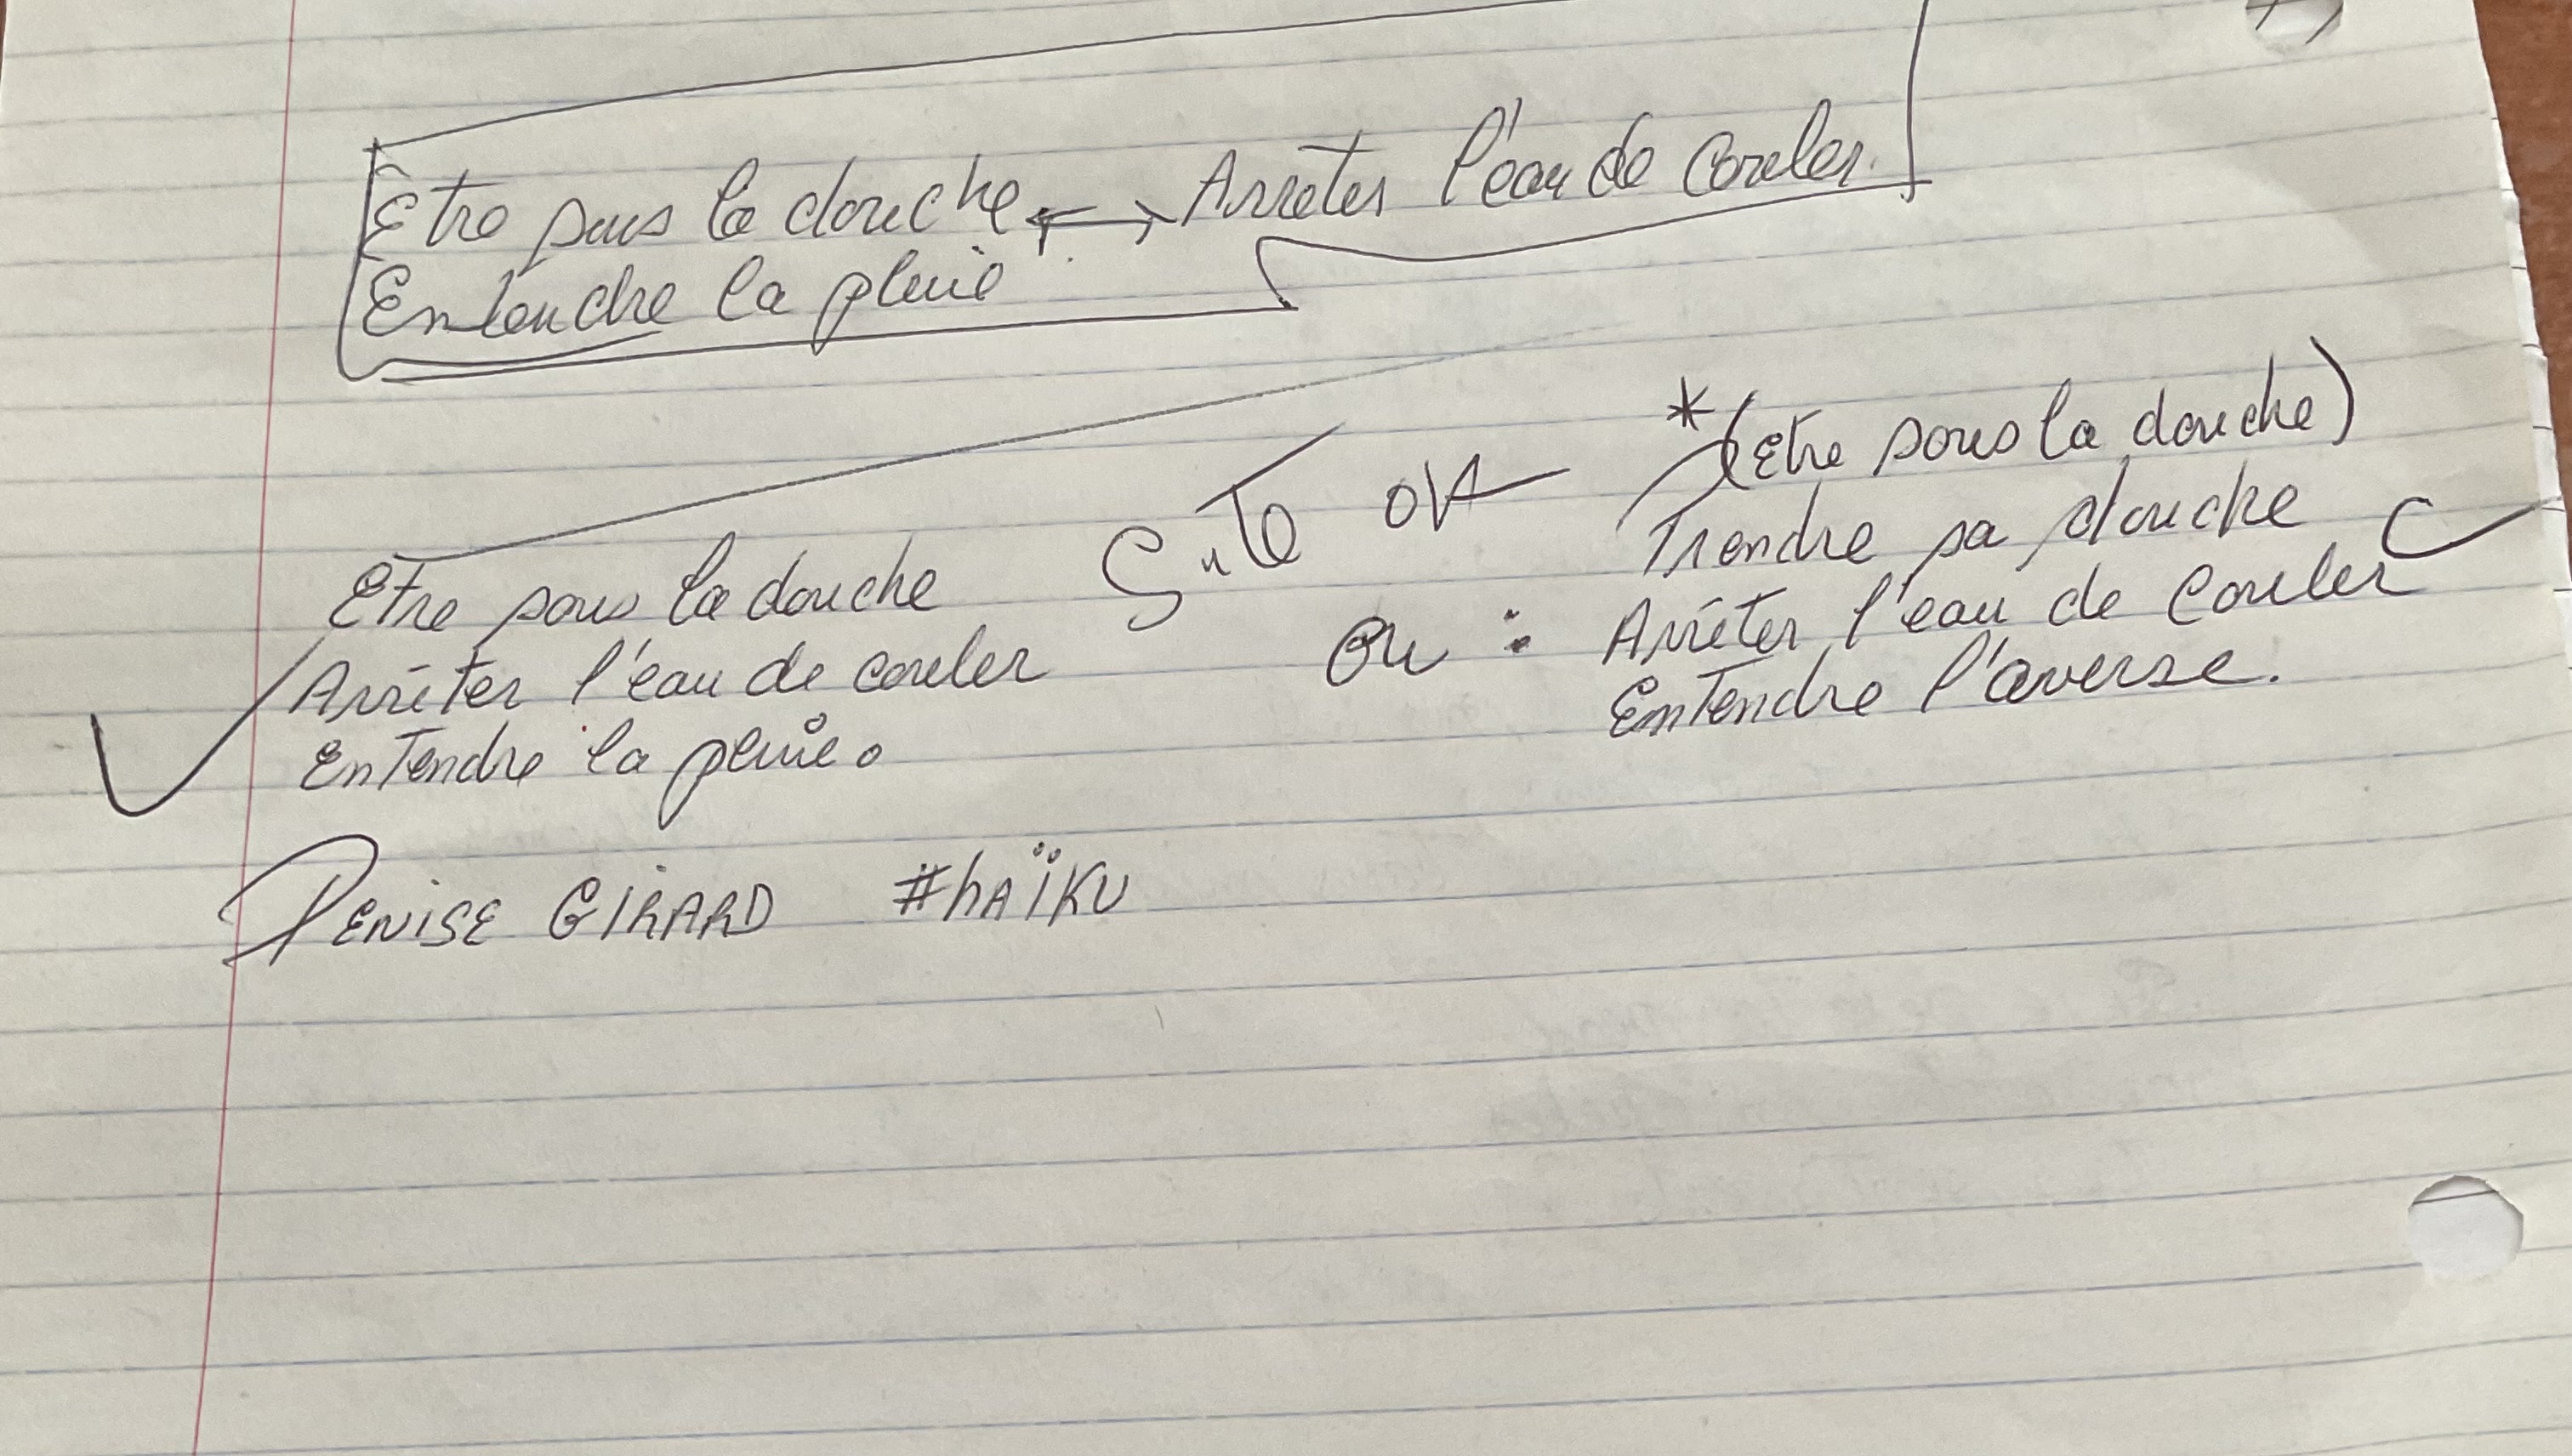 Etre sous la douche ←→ Arrêter l'eau de couler.
Entendre la pluie
Etre sous la douche
Arrêter l'eau de couler
Entendre la pluie.
Suite
ou :
*(Etre sous la douche)
Prendre sa douche
Arrêter l'eau de couler
Entendre l'averse.
DENISE GIRARD #hAÏKU